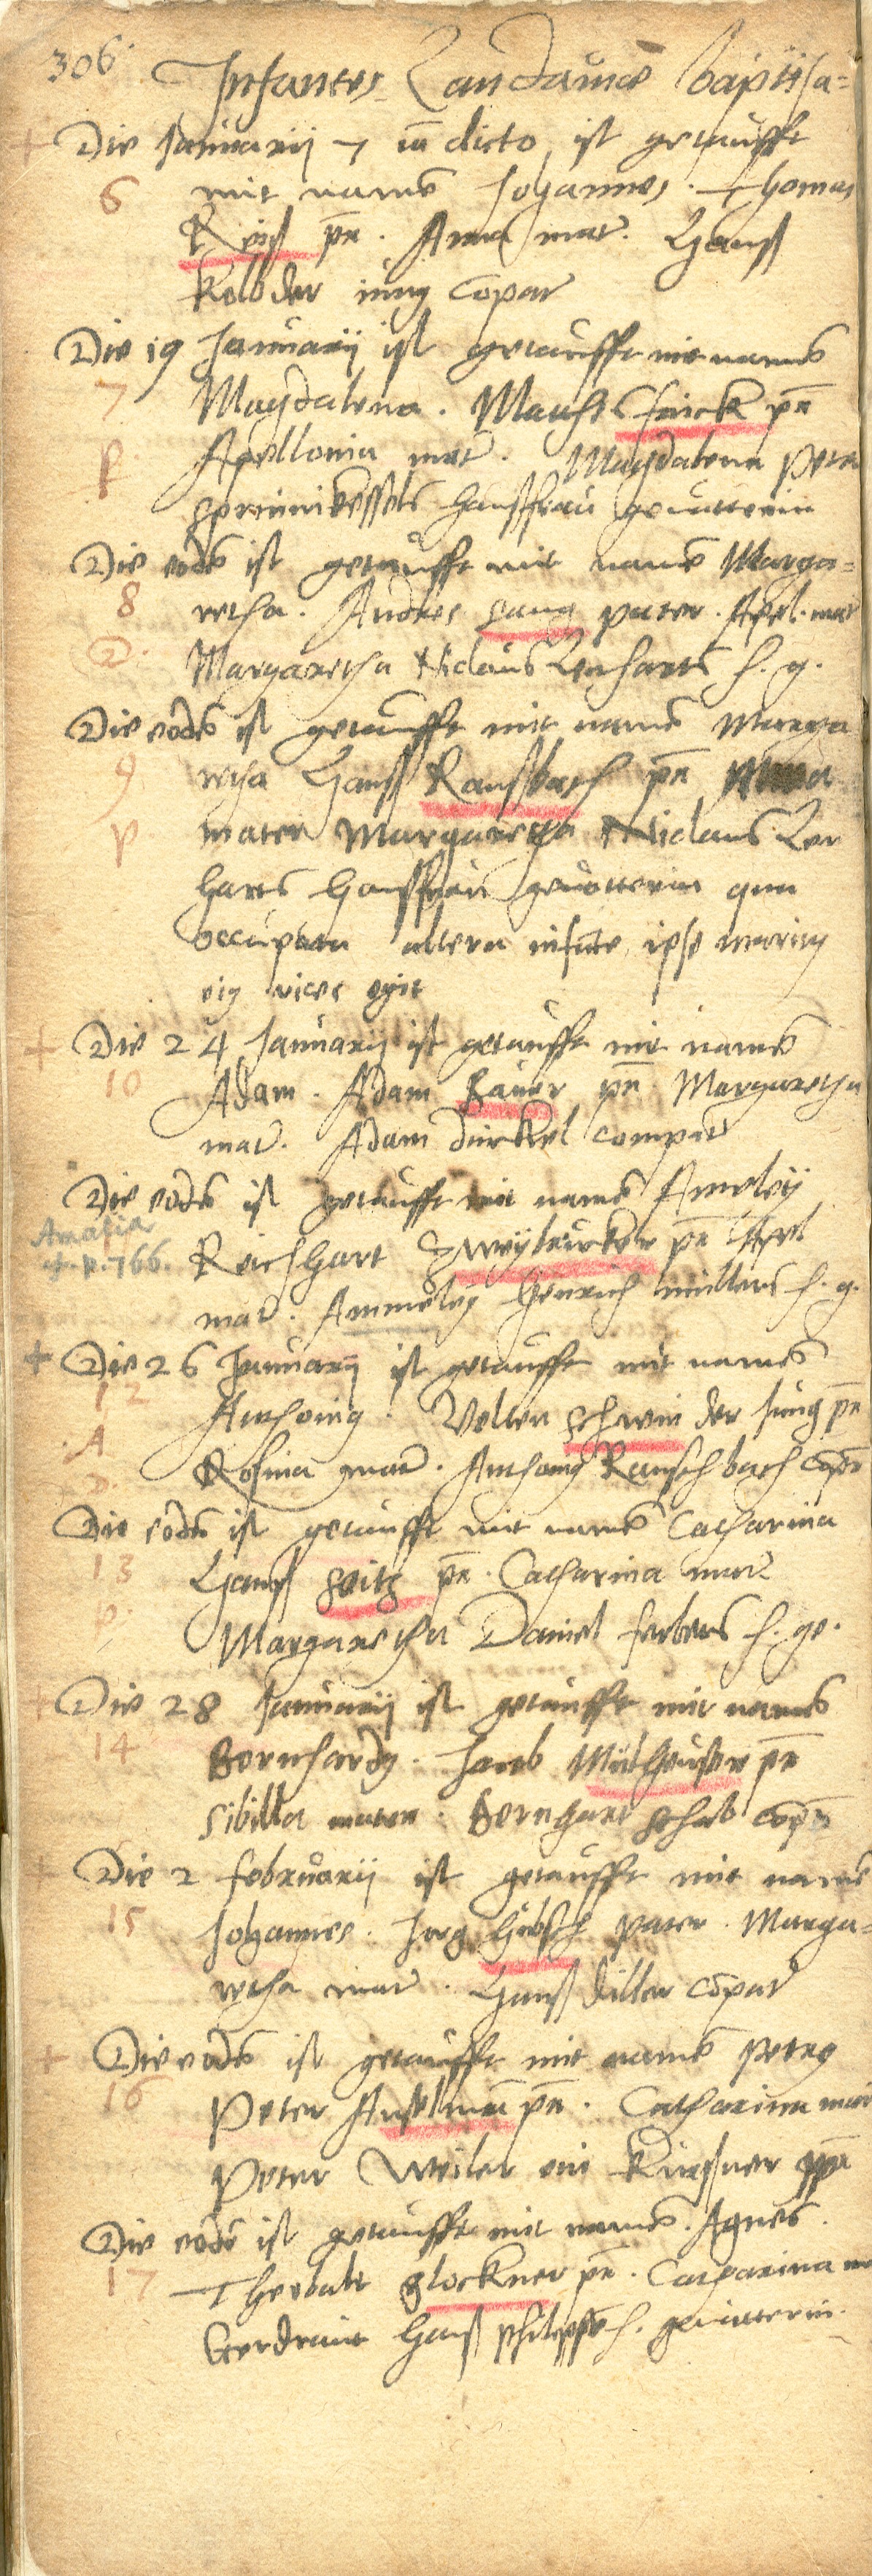 306.
Infantes Landauiae baptisa=
Die Januarij 7 in dicto ist getaufft
6 mit namē Johannes. Thomas
pr̄. Anna mat. Hanß
Kolb der iung Copat
Die 19 Januarij ist getaufft mit namē
7 Magdalena. Mathes Frick pr̄
p. Apellonia mat. Magdalena Peter
haußfrau geuatterin
Die eodē ist getaufft mit namē Marga=
8 retha. Andres Lang pater. Apel. mat
D. Margaretha Niclaus Lenharts h. g.
Die eodē ist getaufft mit namē Marga
9 retha Hanß Rauschbach pr̄
p mater Margaretha Niclaus Len
harts haußfrau geuatterin qua
occupata altera infāte ipse maritꝰ
eiꝰ vices egit
Die 24 Januarij ist getaufft mit namē
10 Adam. Adam Bauer pr̄ Margaretha
mat. Adam Dürckel compat
Die eodē ist getaufft mit namē Ameleÿ
Amalia
cf. p. 766. Reichart Zweÿbrücker pr̄ Apel
mat. Ammeleÿ Henrich müllers h. g.
Die 26 Januarij ist getaufft mit namē
12 Anthoniꝰ. Velten Schwein der Jung pr̄
A Rosina mat. Anthonÿ Rauschbach copr̄
D.
Die eodē ist getaufft mit namē Catharina
13 Hanß Seitz pr̄. Catharina mat
p. Margaretha Daniel ferbers h. ge.
Die 28 Januarij ist getaufft mit namē
14 Bernhardꝰ. Jacob Mülheuser pr̄
Sibilla mater. Bernhart Schab copr̄
Die 2 Februarij ist getaufft mit namē
15 Johannes. Jorg Hebsch pater. Marga=
retha mat. Hanß Diller cōpat
Die eodē ist getaufft mit namē Petrꝰ
16 Peter Anselmā pr̄. Catharina mat
Peter Weiler ein Kürßner
Die eodē ist getaufft mit namē. Agnes.
17 Theobalt Glockner pr̄. Catharina
Gerdraut Hanß Philipßē h. geuatterin.